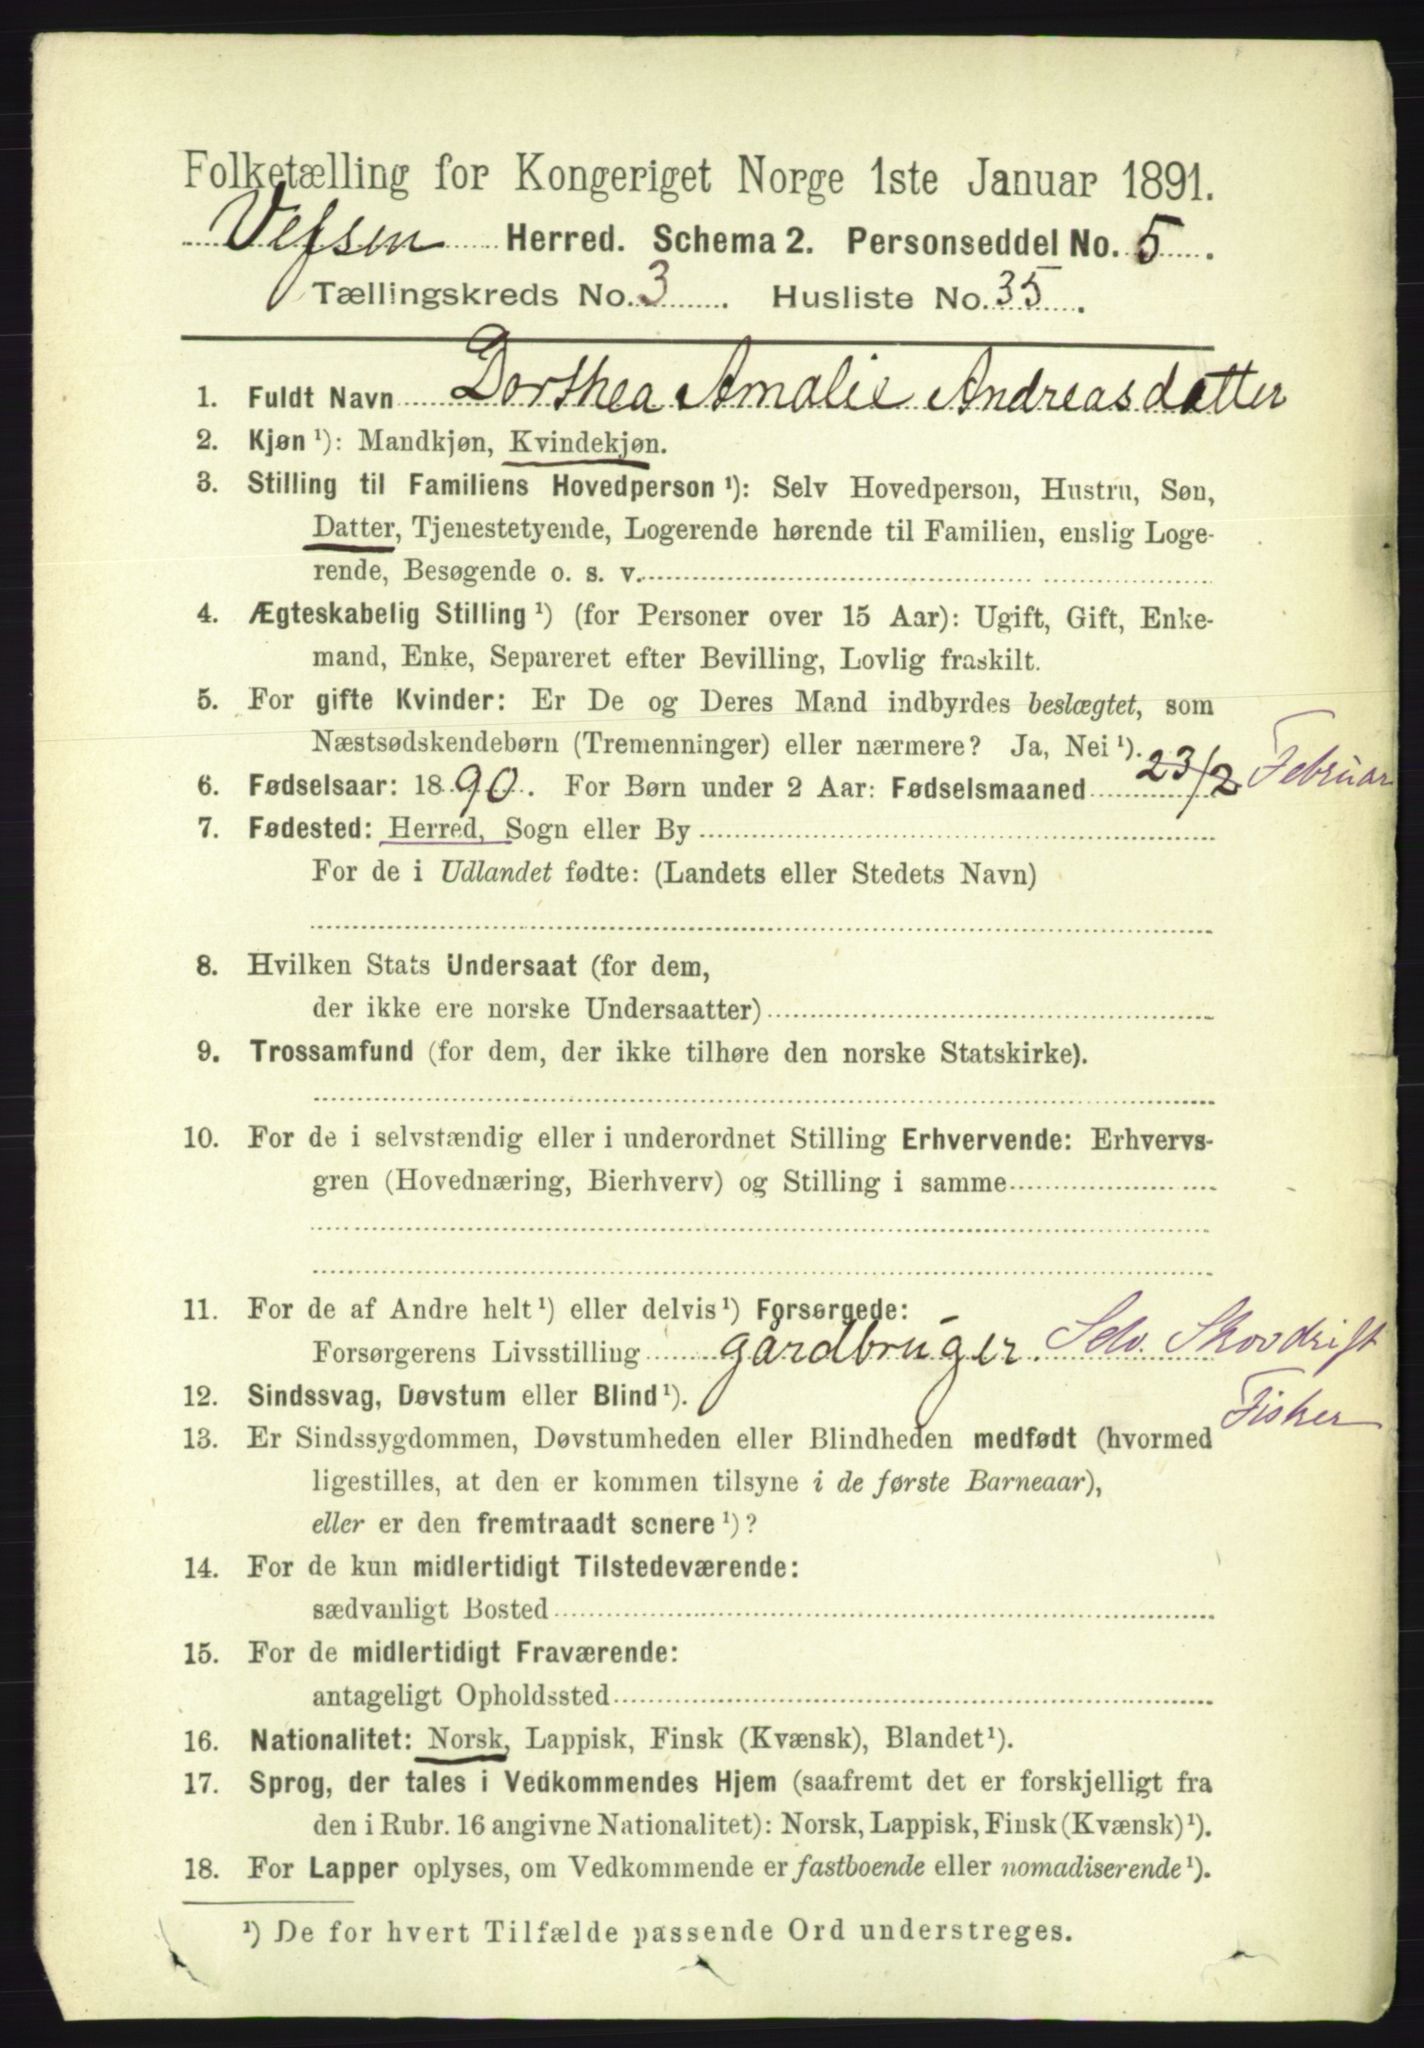 Folketælling for Kongeriget Norge 1ste Januar 1891.
Vefsen Herred. Schema 2. Personseddel No. 5.
Tællingskreds No. 3. Husliste No. 35.
1. Fuldt Navn Dorthea Amalie Andreasdatter
2. Kjøn ¹): Mandkjøn, Kvindekjøn.
3. Stilling til Familiens Hovedperson ¹): Selv Hovedperson, Hustru, Søn,
Datter, Tjenestetyende, Logerende hørende til Familien, enslig Loge-
rende, Besøgende o. s. v.
4. Ægteskabelig Stilling ¹) (for Personer over 15 Aar): Ugift, Gift, Enke-
mand, Enke, Separeret efter Bevilling, Lovlig fraskilt.
5. For gifte Kvinder: Er De og Deres Mand indbyrdes beslægtet, som
Næstsødskendebørn (Tremenninger) eller nærmere? Ja, Nei ¹).
6. Fødselsaar: 1890. For Børn under 2 Aar: Fødselsmaaned 23/2 Februar
7. Fødested: Herred, Sogn eller By
For de i Udlandet fødte: (Landets eller Stedets Navn)
8. Hvilken Stats Undersaat (for dem,
der ikke ere norske Undersaatter)
9. Trossamfund (for dem, der ikke tilhøre den norske Statskirke).
10. For de i selvstændig eller i underordnet Stilling Erhvervende: Erhvervs-
gren (Hovednæring, Bierhverv) og Stilling i samme
11. For de af Andre helt ¹) eller delvis ¹) Forsørgede:
Forsørgerens Livsstilling gårdbruger. Selv. Skovdrift
Fisker
12. Sindssvag, Døvstum eller Blind ¹).
13. Er Sindssygdommen, Døvstumheden eller Blindheden medfødt (hvormed
ligestilles, at den er kommen tilsyne i de første Barneaar),
eller er den fremtraadt senere ¹)?
14. For de kun midlertidigt Tilstedeværende:
sædvanligt Bosted
15. For de midlertidigt Fraværende:
antageligt Opholdssted
16. Nationalitet: Norsk, Lappisk, Finsk (Kvænsk), Blandet ¹).
17. Sprog, der tales i Vedkommendes Hjem (saafremt det er forskjelligt fra
den i Rubr. 16 angivne Nationalitet): Norsk, Lappisk, Finsk (Kvænsk) ¹).
18. For Lapper oplyses, om Vedkommende er fastboende eller nomadiserende ¹).
¹) De for hvert Tilfælde passende Ord understreges.